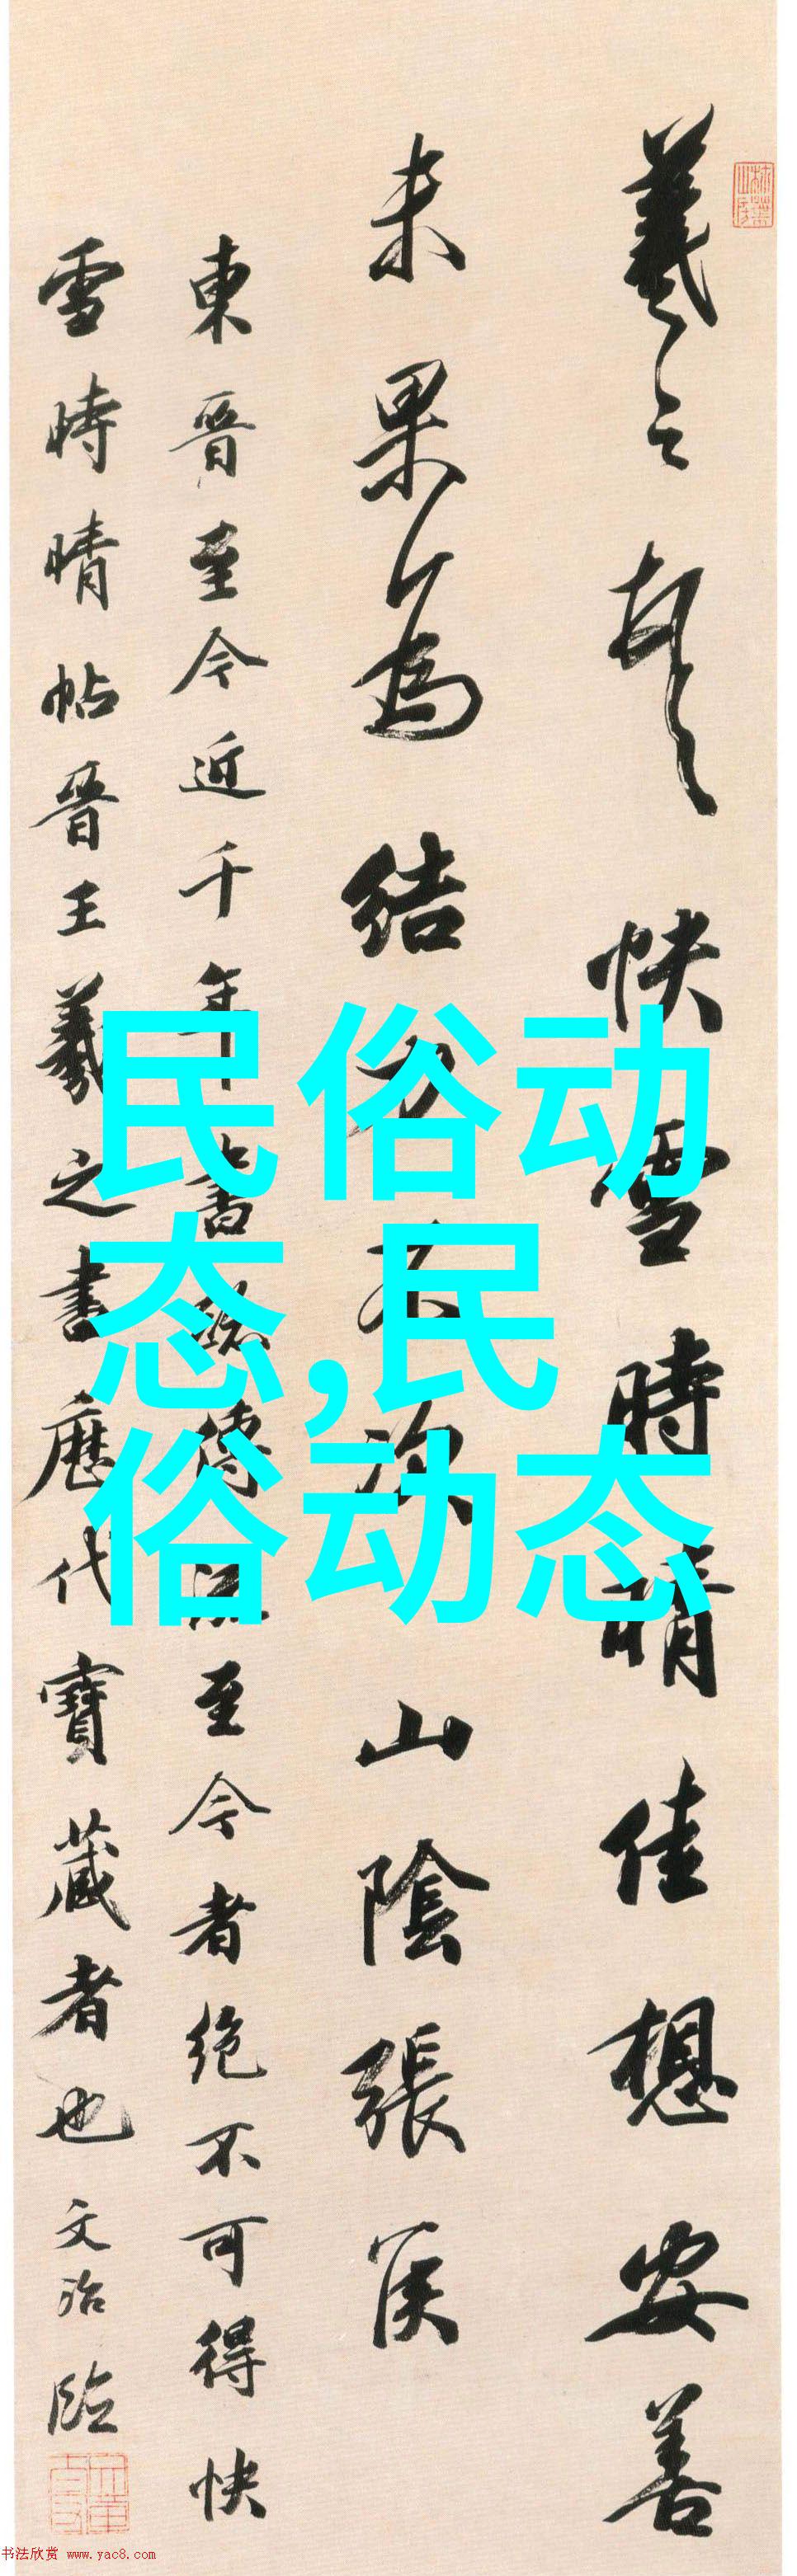 羲之頓首快雪時晴佳想安善
未果為結力不次山陰張侯
東晉至今近千年書跡傳流至今者絕不可得快
雪時晴帖晉王羲之書歷代寶藏者也文治臨
民俗动
态,民
俗动态
书法欣赏 www.yac8.com